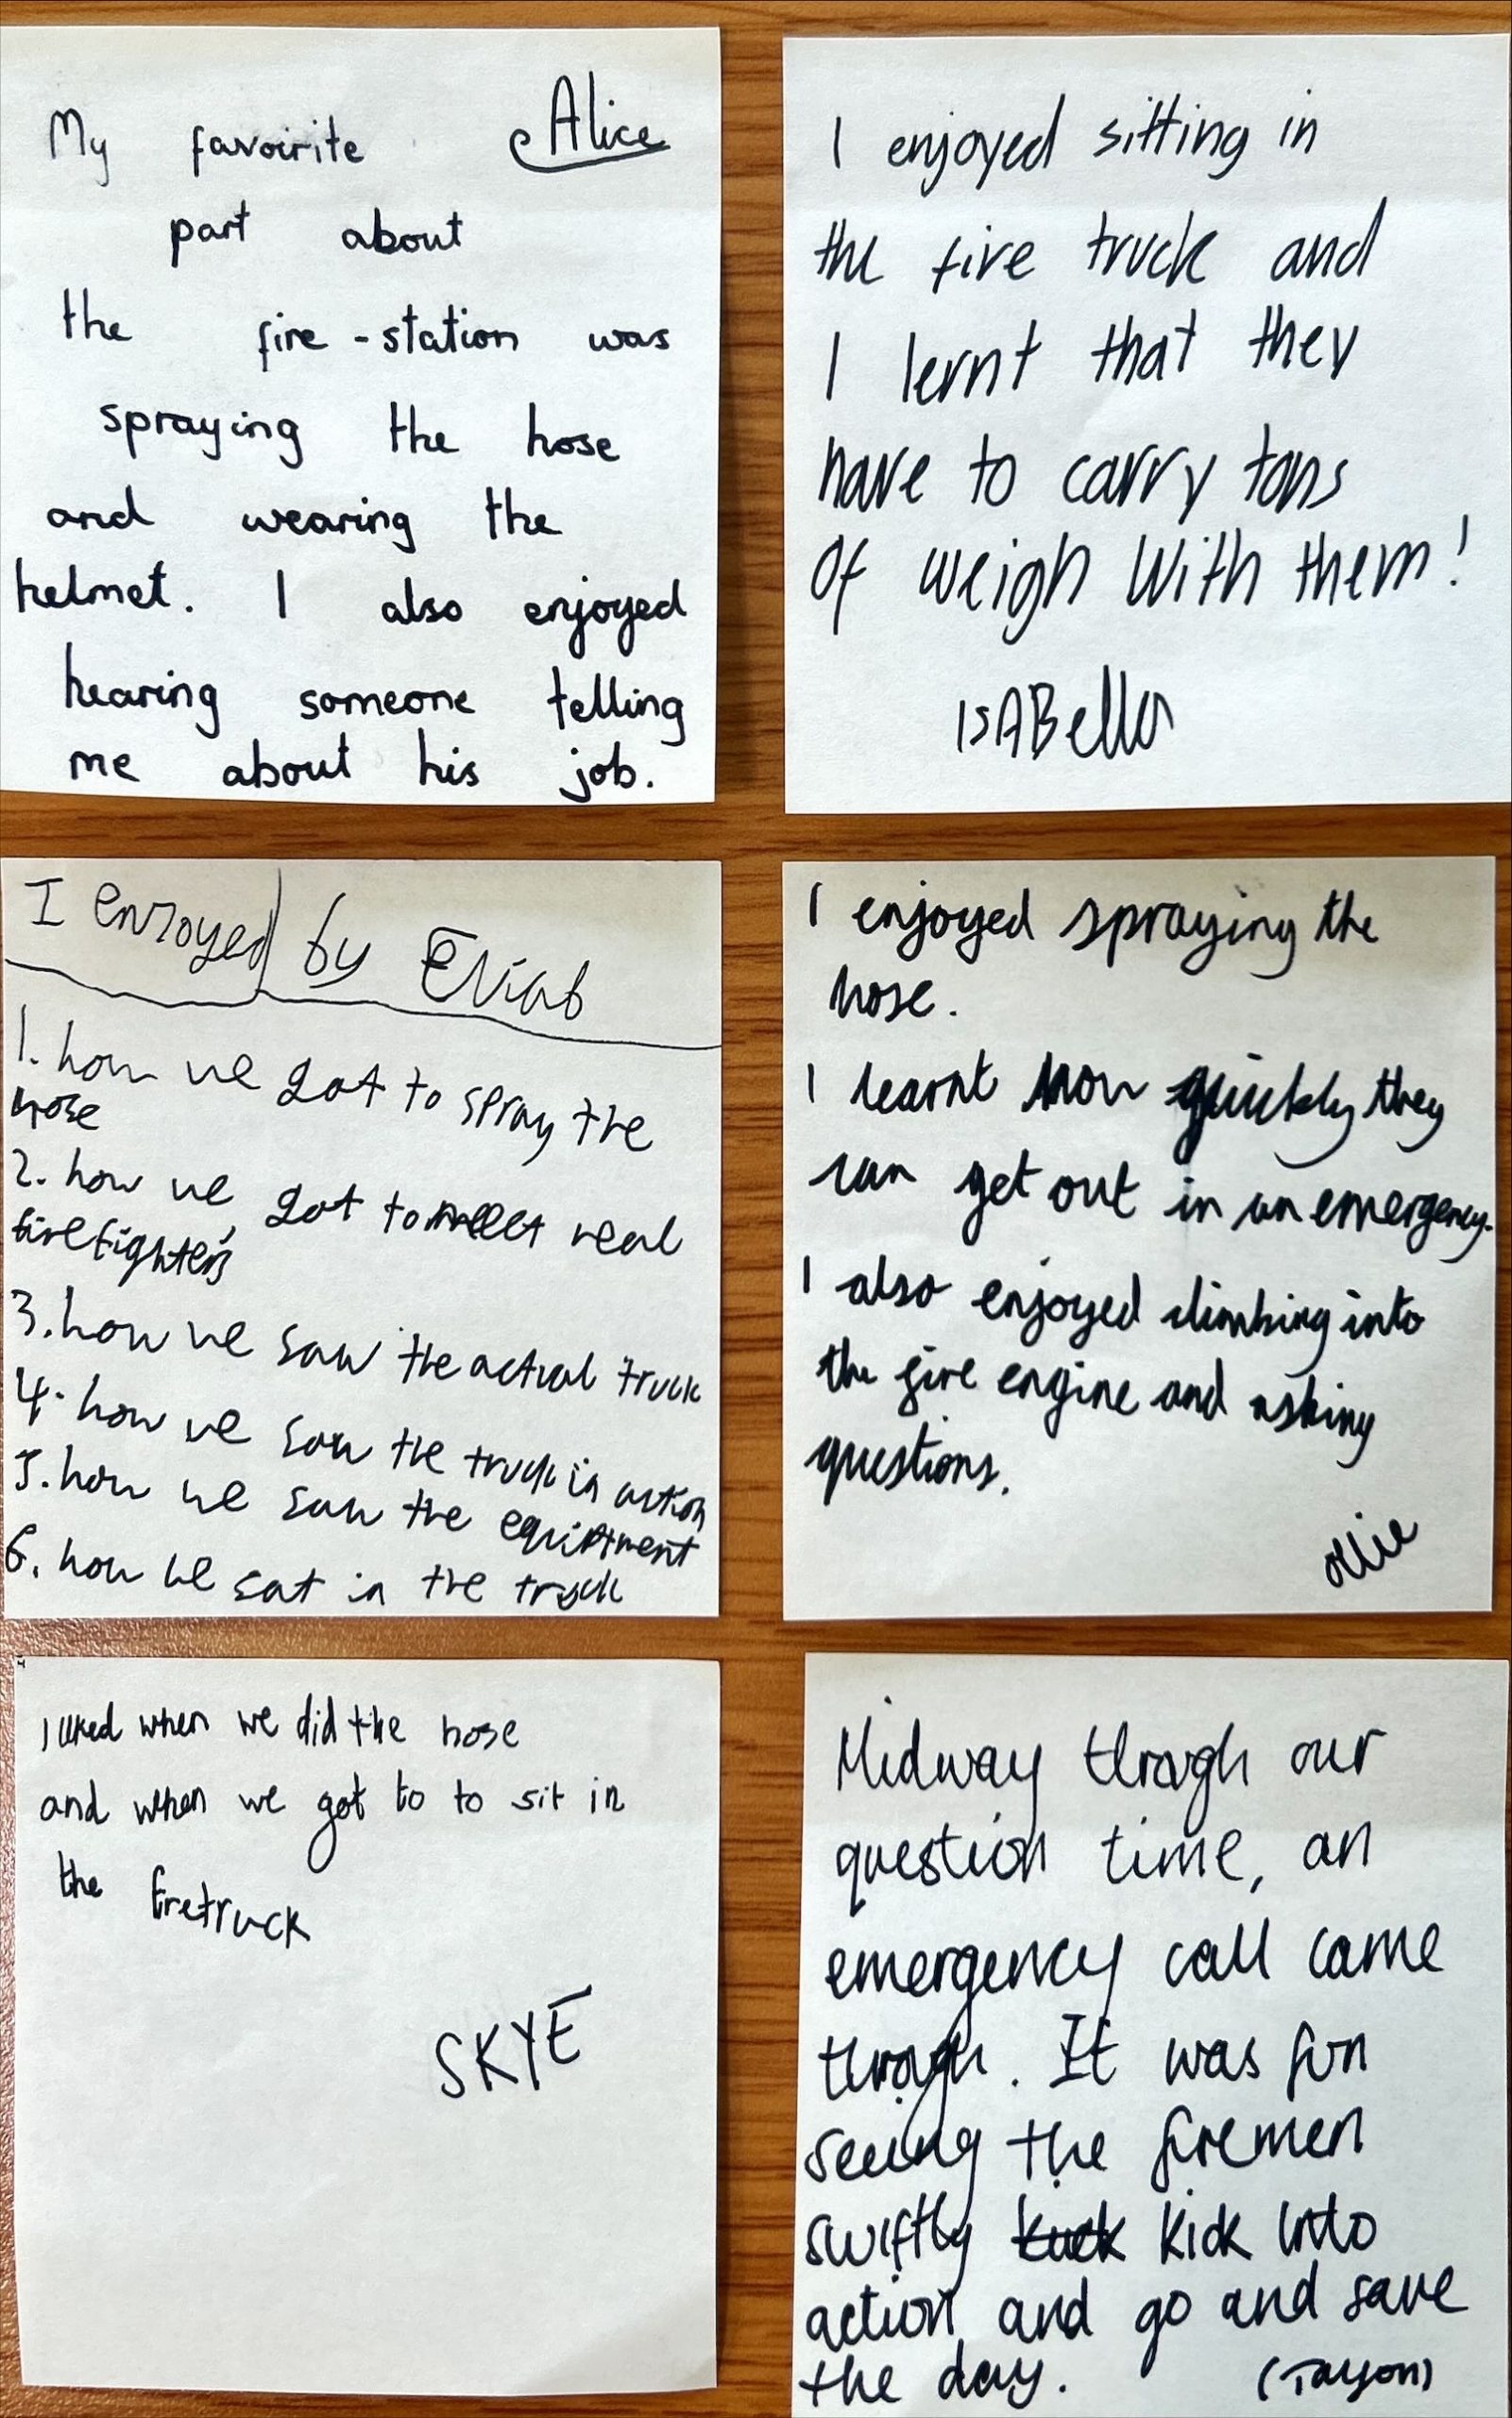 My favoirite Alice
part about
the fire-station was
spraying the hose
and wearing the
helmet. I also enjoyed
hearing someone telling
me about his job.
I enjoyed sitting in
the fire truck and
I lernt that they
have to carry tons
of weigh With them!
ISABella
I enjoyed by Eliab
1. how we got to spray the
hose
2. how we got to meet real
firefighters
3. how we saw the actual truck
4. how we saw the truck in action
5. how we saw the equiptment
6. how we sat in the truck
I enjoyed spraying the
hose.
I learnt how quickly they
can get out in an emergency.
I also enjoyed climbing into
the fire engine and asking
questions.
ollie
I liked when we did the hose
and when we got to to sit in
the firetruck
SKYE
Midway through our
question time, an
emergency call came
through. It was fun
seeing the firemen
swiftly kick into
action and go and save
the day. (Tayon)